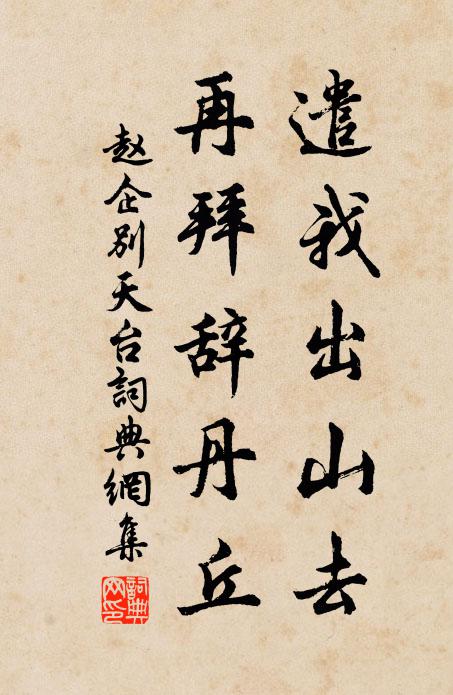 遣我出山去
再拜辞丹丘
赵企别天台詞典網集
詞典网印